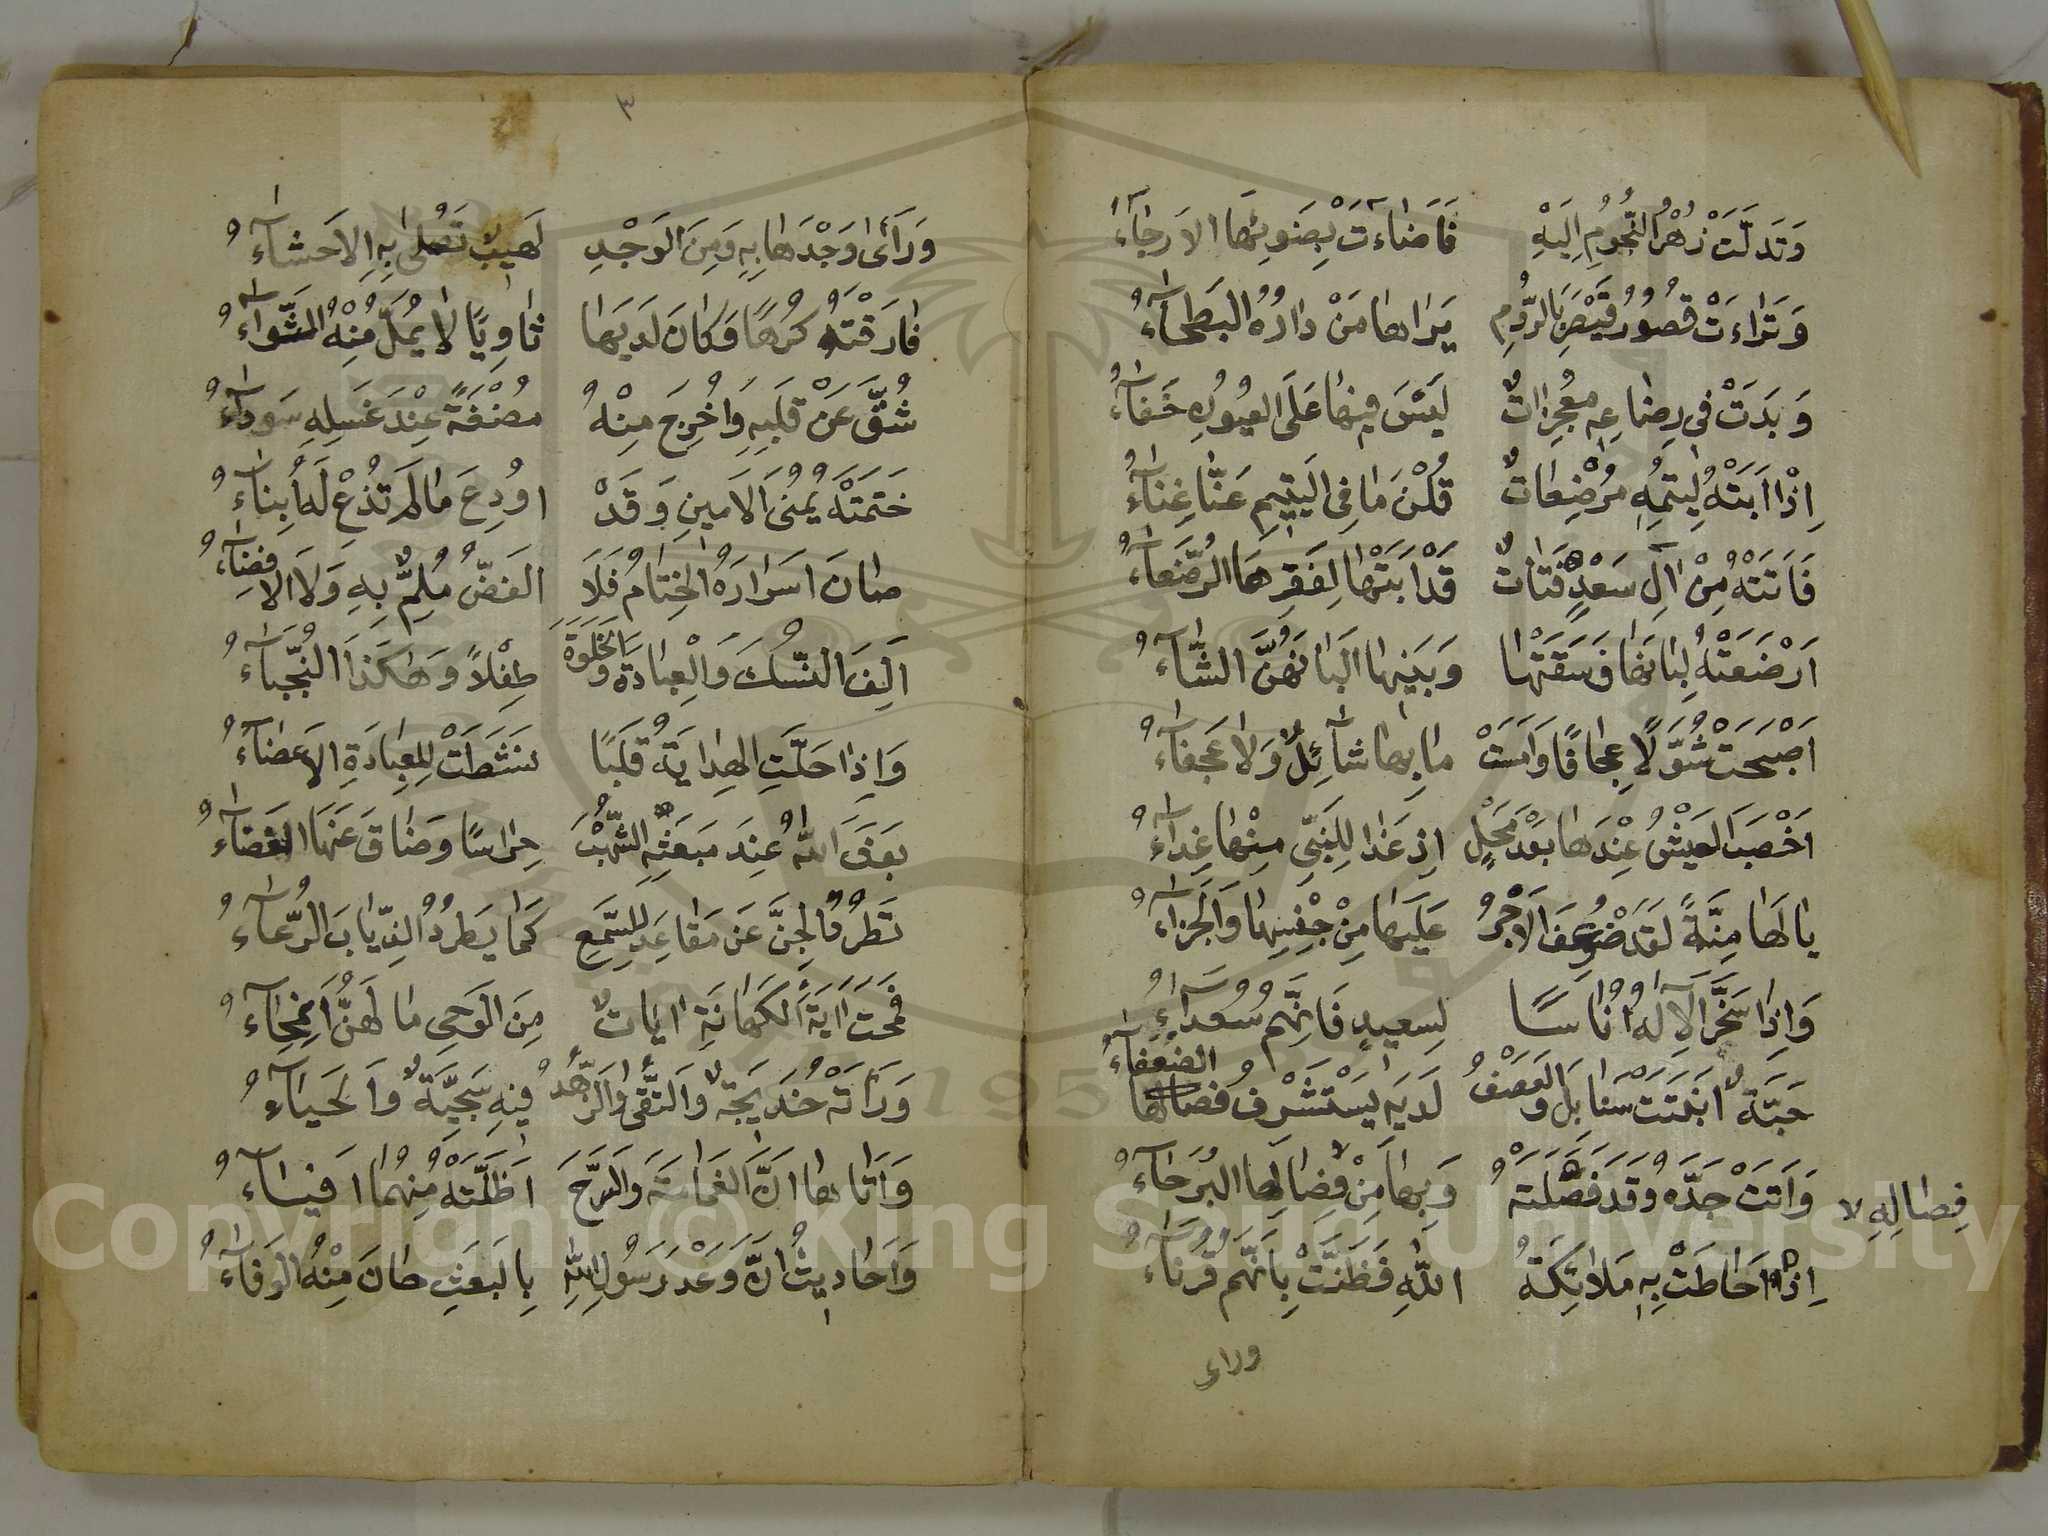 وَتَدَلَّتْ زُهْرُ النُّجُومِ اِلَيْهِ فَاَضَاءَتْ بِضَوئِهَا الاَرجَآءُ
وَتَرَاءَتْ قُصُورُ قَيْصَرَ بِالرُّومِ يَرَاهَا مَنْ دَارُهُ البَطحَآءُ
وَبَدَتْ فِى رِضَاعِهِ مُعْجِزَاتٌ لَيْسَ فِيهَا عَلَى العُيُونِ خَفَآءُ
اِذْ اَبَتْهُ لِيُتمِهِ مُرْضِعَاتٌ قُلْنَ مَا فِى اليَتِيمِ عَنَّا غِنَآءُ
فَاَتَتْهُ مِنْ اٰلِ سَعْدٍ فَتَاتٌ قَدْ اَبَتْهَا لِفَقرِهَا الرُّضَعَآءُ
اَرْضَعَتْهُ لِبَانَهَا فَسَقَتْهَا وَبَنِيهَا اَلبَانَهُنَّ الشَّآءُ
اَصْبَحَتْ شُوَّلًا عِجَافًا وَاَمسَتْ مَا بِهَا شَآئِلٌ وَلَا عَجفَآءُ
اَخْصَبَ العَيْشُ عِنْدَهَا بَعْدَ مَحْلٍ اِذ غَذَا لِلنَّبِيّ مِنْهَا غِذَآءُ
يَا لَهَا مِنَّةً لَقَد ضُوعِفَ الاَجْرُ عَلَيهَا مِنْ جِنْسِهَا وَالجَزَآءُ
وَاِذَا سَخَّرَ الاِلٰهُ اُنَاسًا لِسَعِيدٍ فَاِنَّهُم سُعَدَآءُ
حَبَّةٌ اَنبَتَتْ سَنَابِلَ وَالعَصْفُ لَدَيهِ يَسْتَشْرِفُ الضعفآءُ
وَاَتَتْ جَدَّهُ وَقَد فَصَلَتْهُ وَبِهَا مِنْ فِصَالِهَا البُرَحَآءُ
فِصَالِهِ
اِذْ اَحَاطَتْ بِهِ مَلَائِكَةُ اللّٰهِ فَظَنَّتْ بِاَنَّهُم قُرَنَآءُ
وراى
٣
وَرَأَى وَجْدَهَا بِهِ وَمِنَ الوَجْدِ لَهِيبٌ تَصلَى بِهِ الاَحشَآءُ
فَارَقَتْهُ كُرْهًا وَكَانَ لَدَيهَا ثَاوِيًا لَا يُمَلُّ مِنْهُ الثَّوَآءُ
شُقَّ عَنْ قَلبِهِ وَاُخْرِجَ مِنْهُ مُضْغَةٌ عِنْدَ غَسلِهِ سَودَآءُ
خَتَمَتْهُ يُمْنَى الاَمِينِ وَقَدْ اوُدِعَ مَا لَم تُذَعْ لَهُ اَنبَآءُ
صَانَ اَسرَارَهُ الخِتَامُ فَلَا الفَضُّ مُلِمٌّ بِهِ وَلَا الاِفضَآءُ
اَلِفَ النُّسْكَ وَالْعِبَادَةَ وَالخَلوَةَ طِفْلًا وَهٰكَذَا النُّجَبَآءُ
وَاِذَا حَلَّتِ الهِدَايَةُ قَلبًا نَشَطَتْ لِلعِبَادَةِ الاَعضَآءُ
بَعَثَ اللّٰهُ عِندَ مَبعَثِهِ الشُّهْبَ حِرَاسًا وَضَاقَ عَنْهَا الفَضَآءُ
تَطرُدُ الجِنَّ عَن مَقَاعِدَ لِلسَّمعِ كَمَا يَطرُدُ الذِّيَابَ الرُّعَآءُ
فَمَحَتْ اٰيَةَ الكَهَانَةِ اٰيَاتٌ مِنَ الوَحىِ مَا لَهُنَّ اِمِّحَآءُ
وَرَاَتْهُ خَدِيجَةٌ وَالتُّقَى وَالزُّهْدُ فِيهِ سَجِيَّةٌ وَالحَيَآءُ
وَاَتَاهَا اَنَّ الغَمَامَةَ وَالسَّرحَ اَظَلَّتْهُ مِنْهُمَا اَفيَآءُ
وَاَحَادِيثُ اَنَّ وَعْدَ رَسُولِ اللّٰهِ بِالبَعْثِ حَانَ مِنْهُ الوَفَآءُ
Copyright © King Saud University
1957